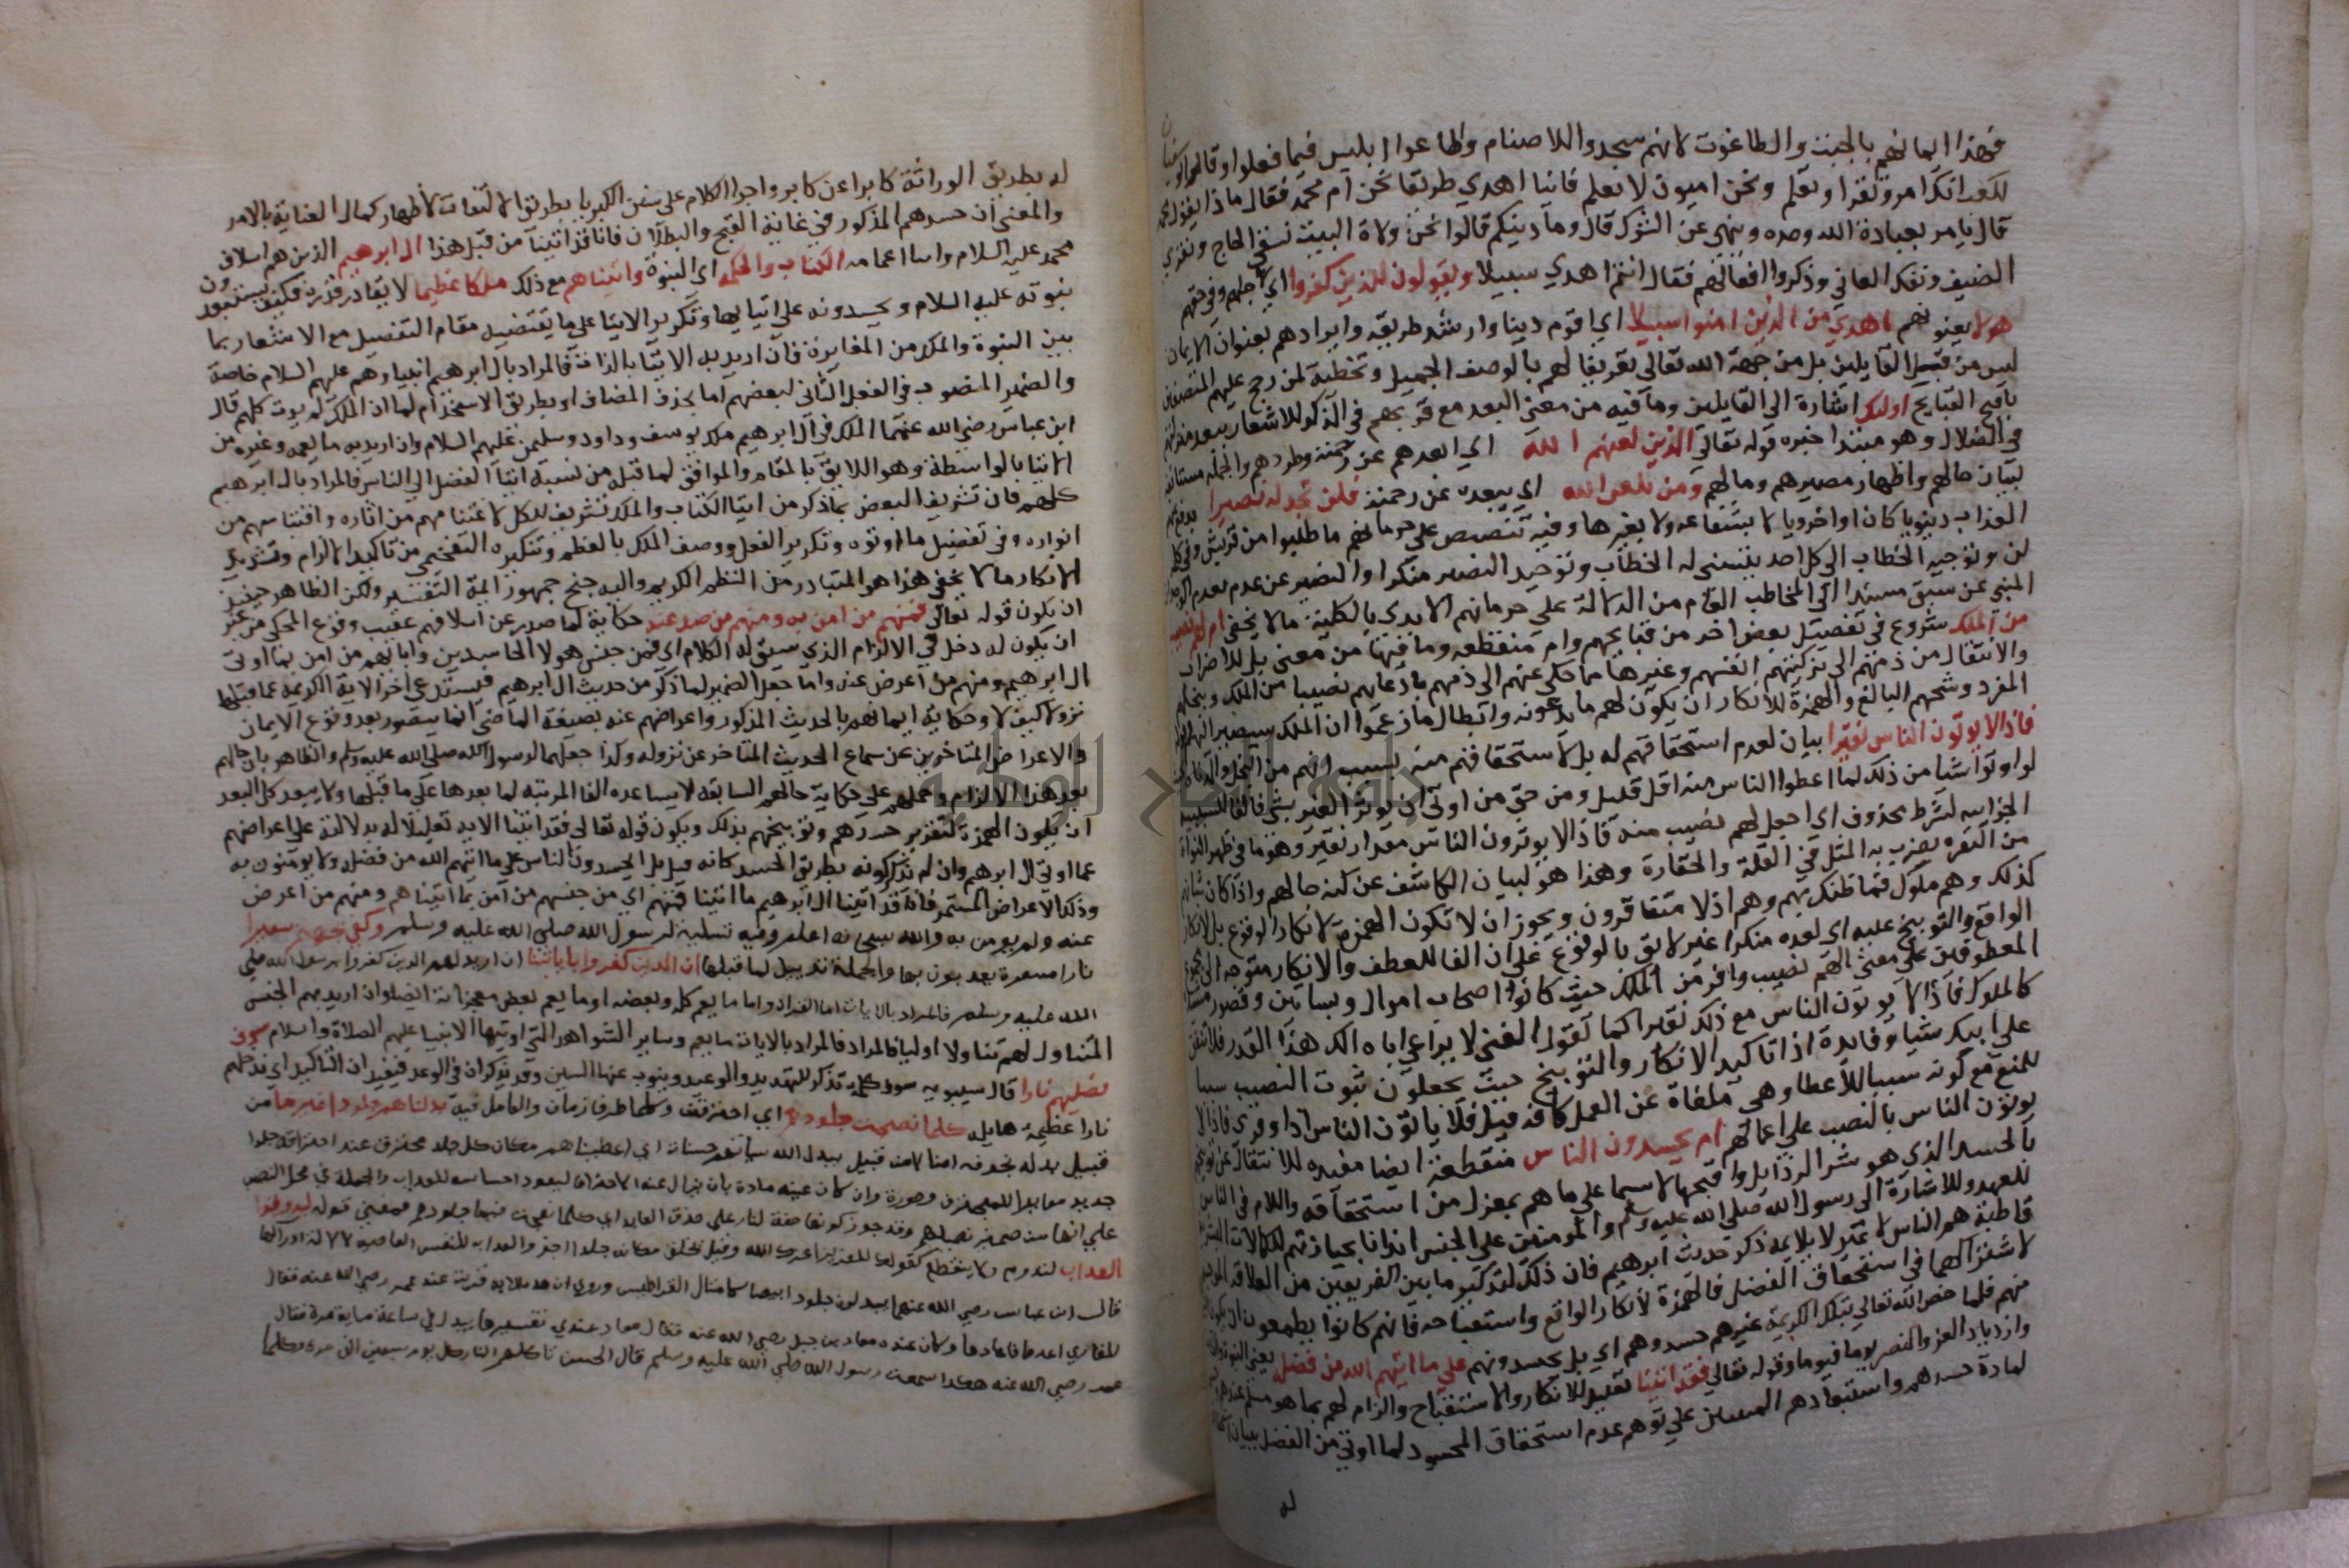 فهذا ايمانهم بالجبت والطاغوت لانهم سجدوا للاصنام وطاعوا ابليس فيما فعلوا وقال ابو سفيان
لكعب انك امرؤ تقرا وتعلم ونحن اميون لا نعلم فاينا اهدي طريقا نحن ام محمد فقال ماذا يقول محمد
قال يامر بعبادة الله وحده وينهي عن الشرك قال وما دينكم قالوا نحن ولاة البيت نسقي الحاج ونقري
الضيف ونفك العاني وذكروا افعالهم فقال انتم اهدي سبيلا ويقولون للذين كفروا اي لاجلهم وفي حقهم
هولا يعنونهم اهدي من الذين امنوا سبيلا اي اقوم دينا وارشد طريقه وايرادهم بعنوان الايمان
ليس من قبيل القايلين بل من جهة الله تعالي تعريفا لهم بالوصف الجميل وتخطية لمن رجح عليهم المتصفين
باقبح القبايح اوليك اشارة الي القايلين وما فيه من معني البعد مع قربهم في الذكر للاشعار ببعد منزلتهم
في الضلال وهو مبتدا خبره قوله تعالي الذين لعنهم الله اي ابعدهم عن رحمته وطردهم والجملة مستانفة
لبيان حالهم واظهار مصيرهم ومالهم ومن يلعن الله اي يبعده عن رحمته فلن تجد له نصيرا يدفع عنهم
العذاب دينويا كان او اخرويا لا بشفاعه ولا بغيرها وفيه تنصيص علي حرمانهم ما طلبوا من قريش وفي كلمة
لن وتوجيه الخطاب الي كل احد يتسني له الخطاب وتوحيد النصير منكرا والتعبير عن عدمه بعدم الوجدان
المنبي عن سبق مسندا الي المخاطب العام من الدلالة علي حرمانهم الابدي بالكلية ما لا يخفي ام لهم نصيب
من الملك شروع في تفصيل بعض اخر من قبايحهم وام منقطعه وما فيها من معني بل للاضراب
والانتقال من ذمهم الي تزكيتهم انفسهم وغيرها مما حكي عنهم الي ذمهم بادعايهم نصيبا من الملك وبخلهم
المفرد وشحهم البالغ والهمزة للانكار ان يكون لهم ما يدعونه وابطال ما زعموا ان الملك سيصير اليهم
فاذا لا يوتون الناس نقيرا بيان لعدم استحقاقهم له بل لاستحقاقهم منه بسبب انهم من البخل والدناءة
لو اوتوا شيا من ذلك لما اعطوا الناس منه اقل قليل ومن حق من اوتي ان يوثر الغير بشي فالفا للسببية
الجزايه لشرط محذوف اي اجعل لهم نصيب منه فاذا لا يوتون الناس مقدار نقير وهو ما في ظهر النواة
من النقره يضرب به المثل في القلة والحقارة وهذا هو لبيان الكاشف عن كنه حالهم واذا كان شانهم
كذلك وهم ملوك فما ظنك بهم وهم اذلا متفاقرون ويجوز ان لا تكون الهمزة لانكار الوقوع بل لانكار
الواقع والتوبيخ عليه اي لعده منكرا غير لايق بالوقوع علي ان الفا للعطف والانكار متوجه الي مجموع
المعطوفين علي معني الهم نصيب وافر من الملك حيث كانوا اصحاب اموال وبساتين وقصور مشيدة
كالملوك فاذا لا يوتون الناس مع ذلك نقيرا كما تقول لغني لا يراعي اباه الك هذا القدر فلا تنفق
علي ابيك شيا وفايدة اذا تاكيد الانكار والتوبيخ حيث يجعلون ثبوت النصيب سببا
للمنع مع كونه سببا للاعطا وهي ملغاة عن العمل كانه قيل فلا ياتون الناس اذا وقري فاذا لا
يوتون الناس بالنصب علي اعمالهم ام يحسدون الناس منقطعة ايضا مفيده للانتقال عن توبيخهم
بالحسد الذي هو شر الرذايل واقبحها لا سيما علي ما هم بمعزل من استحقاقه واللام في الناس
للعهد وللاشارة الي رسول الله صلي الله عليه وسلم والمومنين علي الجنس ايذانا بحيازتهم لكمالات البشرية
قاطبة هم الناس لا غير لا يلايمه ذكر حديث ابرهيم فان ذلك لتذكير ما بين الفريقين من العلاقه الموجبة
لاشتراكهما في استحقاق الفضل فالهمزة لانكار الواقع واستقباحه فانهم كانوا يطمعون ان يكون
منهم فلما خص الله تعالي بتلك الكريمة غيرهم حسدوهم اي بل يحسدونهم علي ما اتيهم الله من فضله يعني النبوة والكتاب
وازدياد العز والنصر يوما فيوما وقوله تعالي فقد اتينا تعليل للانكار والاستقباح والزام لهم بما هو مسلم عندهم
لمادة حسدهم واستبعادهم المبنيين علي توهم عدم استحقاق المحسود لما اوتي من الفضل ببيان
له
له بطريق الوراثة كابرا عن كابر واجرا الكلام علي سنن الكبريا بطريق الالتفات لاظهار كمال العناية بالامر
والمعني ان حسدهم المذكور في غاية القبح والبطلان فانا قد اتينا من قبل هذا ال ابرهيم الذين هم اسلاف
محمد عليه السلام وابنا اعمامه الكتاب والحكمه اي النبوة واتيناهم مع ذلك ملكا عظيما لا يقادر قدره فكيف يستبعدون
نبوته عليه السلام ويحسدونه علي اتيانها وتكرير الايتا علي ما يقتضيه مقام التفصيل مع الاشعار بما
بين النبوة والملك من المغايرة فان اريد به الايتا بالذات فالمراد بال ابرهيم انبياوهم عليهم السلام خاصة
والضمير المنصوب في الفعل الثاني لبعضهم اما بحذف المضاف او بطريق الاستخدام لما ان الملك لم يوت كلهم قال
ابن عباس رضي الله عنهما الملك في ال ابرهيم ملك يوسف وداود وسليمن عليهم السلام وان اريد به ما يعمه وغيره من
الايتا بالواسطة وهو اللايق بالمقام والموافق لما قبله من نسبة ايتا الفضل الي الناس فالمراد بال ابرهيم
كلهم فان تشريف البعض بما ذكر من ايتا الكتاب والملك تشريف للكل لاغتنامهم من اثاره واقتباسهم من
انواره وفي تفضيل ما اوتوه وتكرير الفعل ووصف الملك بالعظم وتنكيره التفخيمي من تاكيد الالزام وتشديد
الانكار ما لا يخفي هذا هو المتبادر من النظم الكريم واليه جنح جمهور ايمة التفسير ولكن الظاهر حينيذ
ان يكون قوله تعالي فمنهم من امن به ومنهم من صد عنه حكاية لما صدر عن اسلافهم عقيب وقوع المحكي من غير
ان يكون له دخل في الالزام الذي سيق له الكلام اي فمن جنس هولا الحاسدين وابايهم من امن بما اوتي
ال ابرهيم ومنهم من اعرض عنه واما جعل الضمير لما ذكر من حديث ال ابرهيم فيستدعي تراخي الاية الكريمة عما قبلها
نزولا كيف لا وحكاية ايمانهم بالحديث المذكور واعراضهم عنه بصيغة الماضي انما يتصور بعد وقوع الايمان
والاعراض المتاخرين عن سماع الحديث المتاخر عن نزوله وكذا جعلهما لرسول الله صلي الله عليه وسلم والظاهر بيان حالهم
بعد هذا الالزام وحمله علي حكاية حالهم السابقه لا يساعده الفا المرتبه لما بعدها علي ما قبلها ولا يبعد كل البعد
ان يكون الهمزة لتقرير حسدهم وتوبيخهم بذلك ويكون قوله تعالي فقد اتينا الايه تعليلا له بدلالته علي اعراضهم
عما اوتي ال ابرهيم وان لم يذكر كونه بطريق الحسد كانه قيل بل ايحسدون الناس علي ما اتيهم الله من فضله ولا يومنون به
وذلك الاعراض المستمر فانا قد اتينا ال ابرهيم ما اتينا فمنهم اي من جنسهم من امن بما اتيناهم ومنهم من اعرض
عنه ولم يومن به والله سبحانه اعلم وفيه تسلية لرسول الله صلي الله عليه وسلم وكفي بجهنم سعيرا
نارا مسعرة يعذبون بها والجملة تذييل لما قبلها ان الذين كفروا باياتنا ان اريد بهم الذين كفروا برسول الله صلي
الله عليه وسلم فالمراد بالايات اما القران او ما يعم كله وبعضه او ما يعم بعض معجزاته ايضا وان اريد بهم الجنس
المتناول لهم تناولا اوليا فالمراد بالايات ما يعم وساير الشواهد التي اوتيها الانبيا عليهم الصلاة والسلام سوف
نصليهم نارا قال سيبويه سوف كلمة تذكر للتهديد والوعيد وينوب عنها السين وقد يذكران في الوعد فيفيدان التاكيد اي ندخلهم
نارا عظيمة هايلة كلما نضجت جلودهم اي احترقت وكلما ظرف زمان والعامل فيه بدلناهم جلودا غيرها من
قبيل بدله بخوفه امنا لا من قبيل يبدل الله سياتهم حسنات اي اعطيناهم مكان كل جلد محترق عند احتراقه جلدا
جديد مغايرا للمحترق صورة وان كان عينه مادة بان يزال عنه الاحتراق ليعود احساسه للعذاب والجملة في محل النصب
علي انها من ضمير نصليهم وقد جوز كونها صفة لنارا علي حذف العايد اي كلما نضجت فيها جلودهم فمعني قوله ليذوقوا
العذاب ليدوم ولا ينقطع كقولك للعزيز اعزك الله وقيل يخلق مكانه جلدا اخر والعذاب للنفس العاصيه لا لالة ادراكها
قال ابن عباس رضي الله عنهما يبدلون جلودا بيضا كامثال القراطيس وروي ان هذه الاية قريت عند عمر رضي الله عنه فقال
للقاري اعدها فاعادها وكان عنده معاذ بن جبل رضي الله عنه فقال معاذ عندي تفسيرها يبدل في ساعة ماية مرة فقال
عمر رضي الله عنه هكذا سمعت رسول الله صلي الله عليه وسلم قال الحسن تاكلهم النار كل يوم سبعين الف مرة كلما